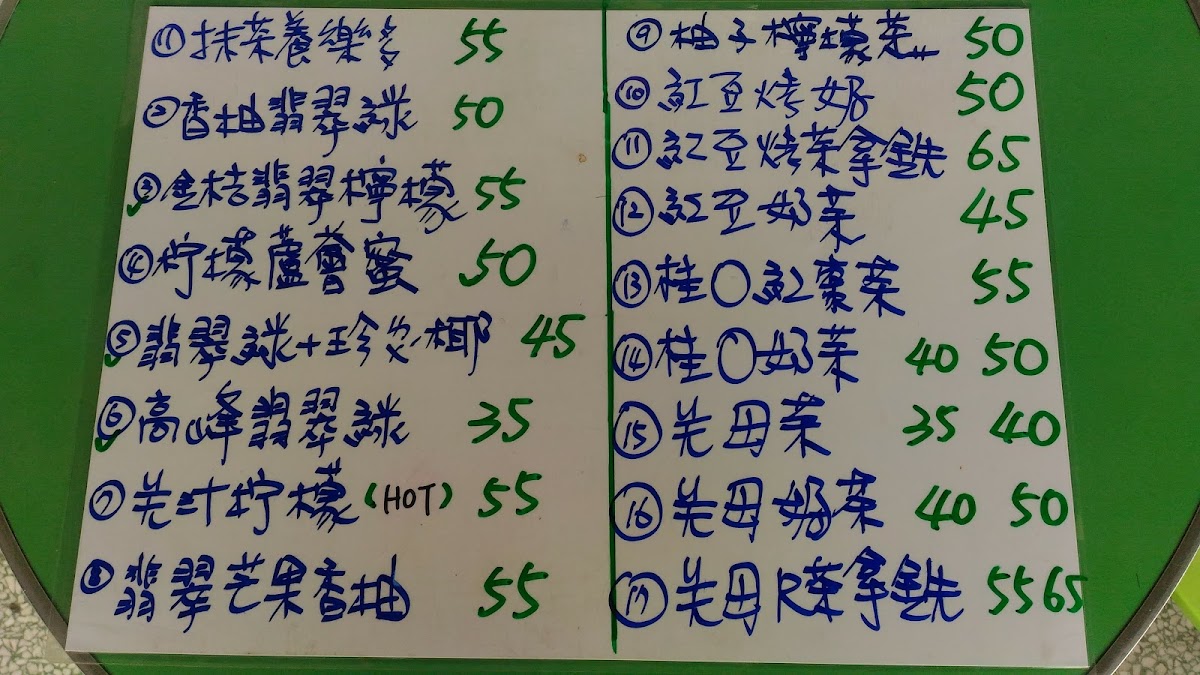 ① 抹茶養樂多 55
② 香柚翡翠綠 50
③ 金桔翡翠檸檬 55
④ 柠檬蘆薈蜜 50
⑤ 翡翠綠+珍、椰 45
⑥ 高峰翡翠綠 35
⑦ 羌汁柠檬(HOT) 55
⑧ 翡翠芒果香柚 55
⑨ 柚子檸檬茶 50
⑩ 紅豆烤奶 50
⑪ 紅豆烤茶拿鐵 65
⑫ 紅豆奶茶 45
⑬ 桂〇紅棗茶 55
⑭ 桂〇奶茶 40 50
⑮ 羌母茶 35 40
⑯ 羌母奶茶 40 50
⑰ 羌母R茶拿鐵 55 65